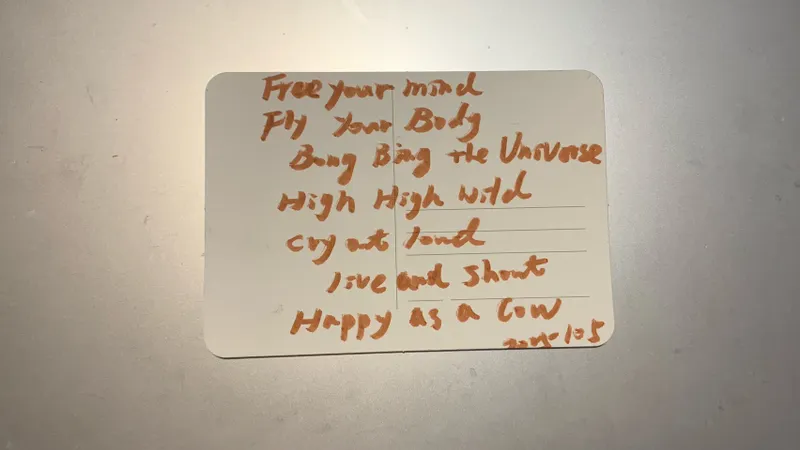 Free your mind
Fly Your Body
Bang Bing the Universe
High High Wild
Cry out loud
live and shout
Happy as a Cow